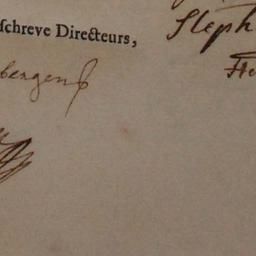 ſchreve Directeurs,
Steph
bergenß
He